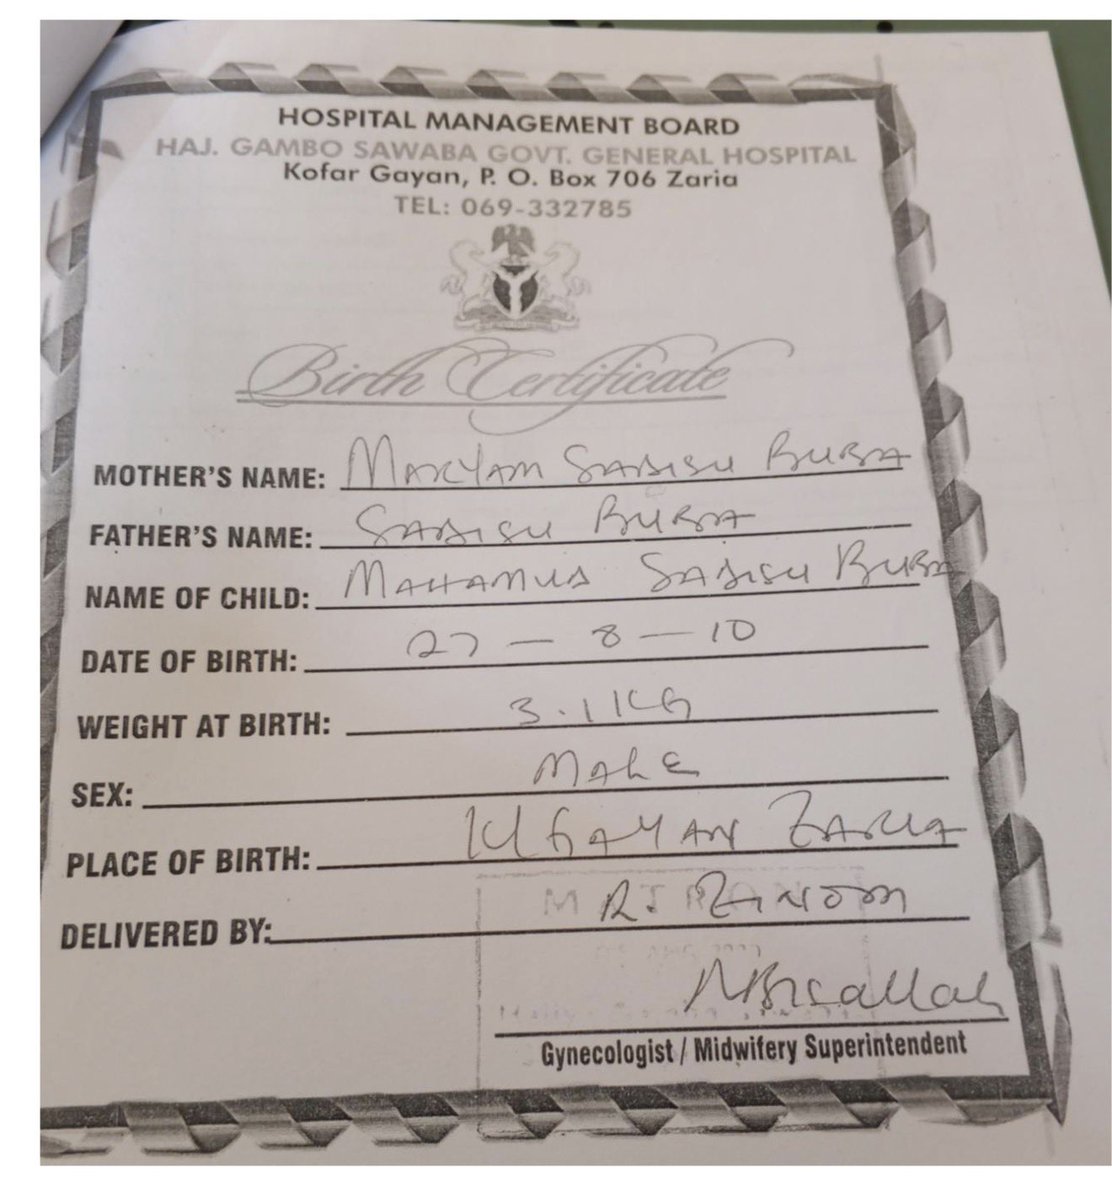 HOSPITAL MANAGEMENT BOARD
HAJ. GAMBO SAWABA GOVT. GENERAL HOSPITAL
Kofar Gayan, P. O. Box 706 Zaria
TEL: 069-332785
Birth Certificate
MOTHER'S NAME: MARYAM SABISU BUBA
FATHER'S NAME: SABISU BUBA
NAME OF CHILD: MAHAMUD SABISU BUBA
DATE OF BIRTH: 27 - 8 - 10
WEIGHT AT BIRTH: 3.1 KG
SEX: MALE
PLACE OF BIRTH: GAYAN ZARIA
DELIVERED BY:
Gynecologist / Midwifery Superintendent